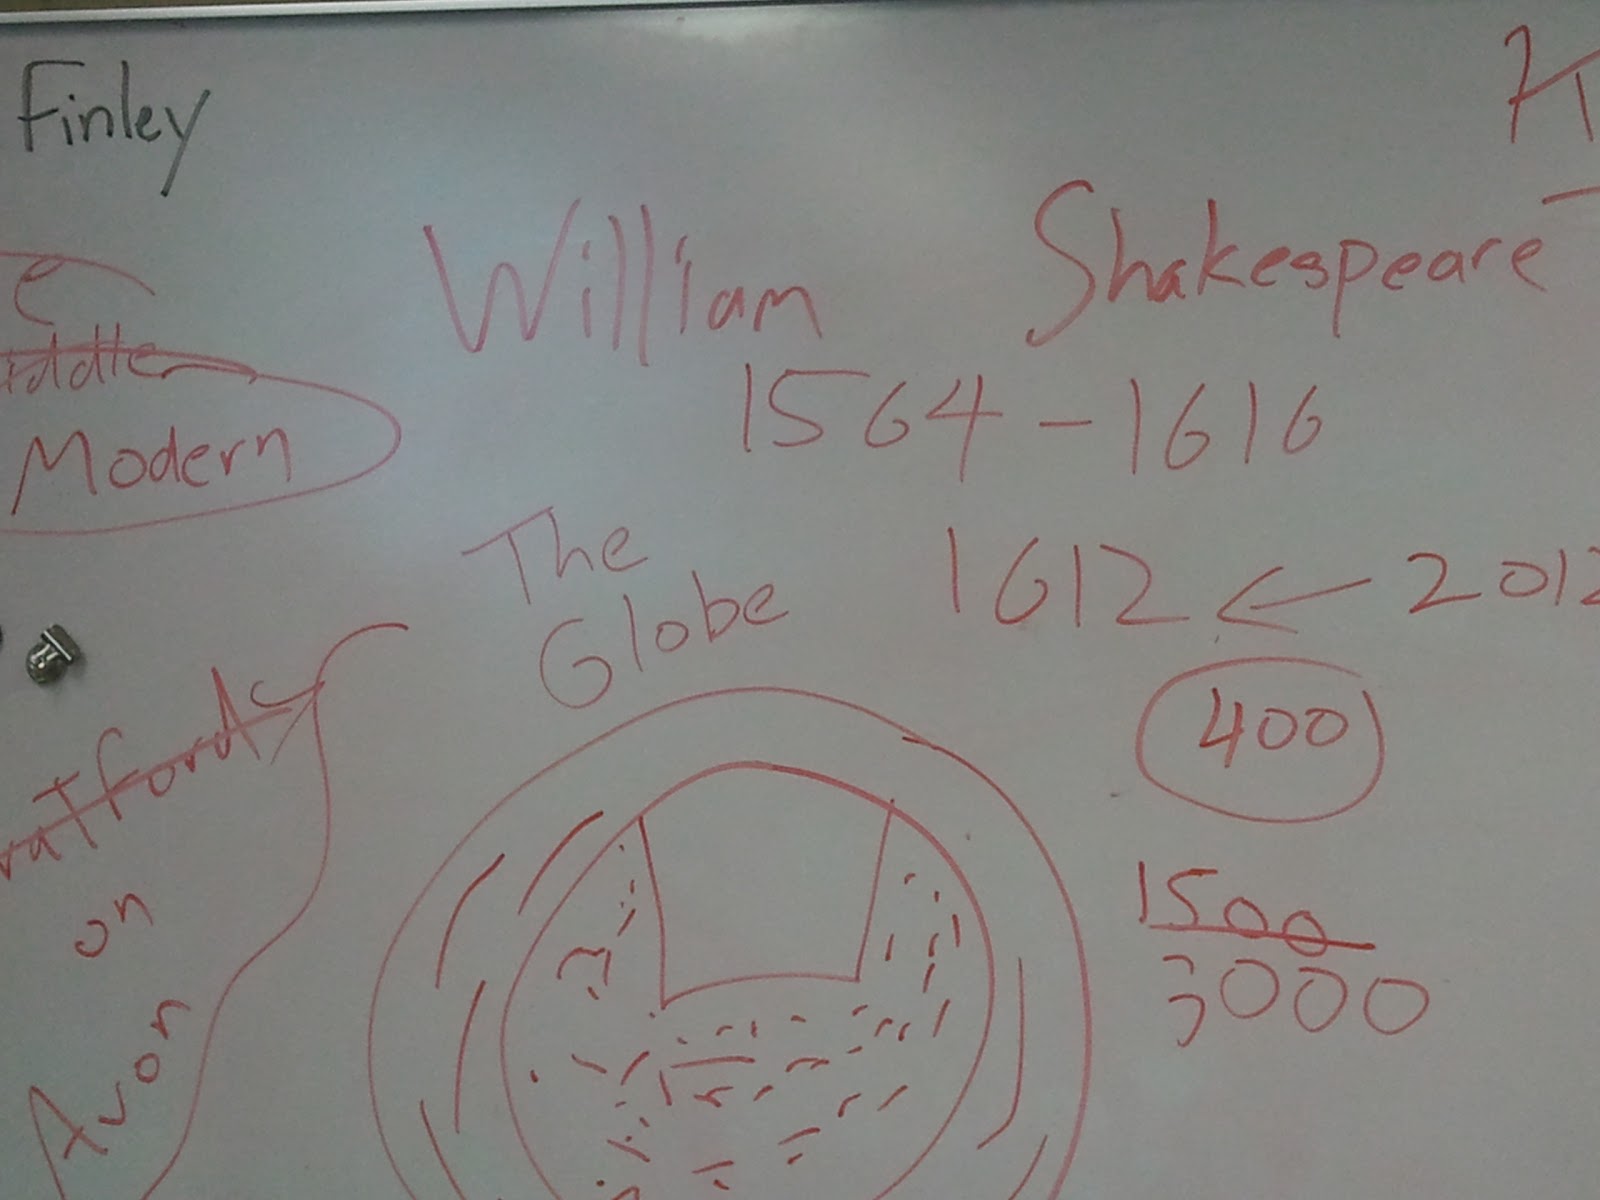 Finley
William Shakespeare
iddle
Modern
1564 - 1616
The
Globe
1612 ← 2012
400
ratford
on
Avon
1500
3000